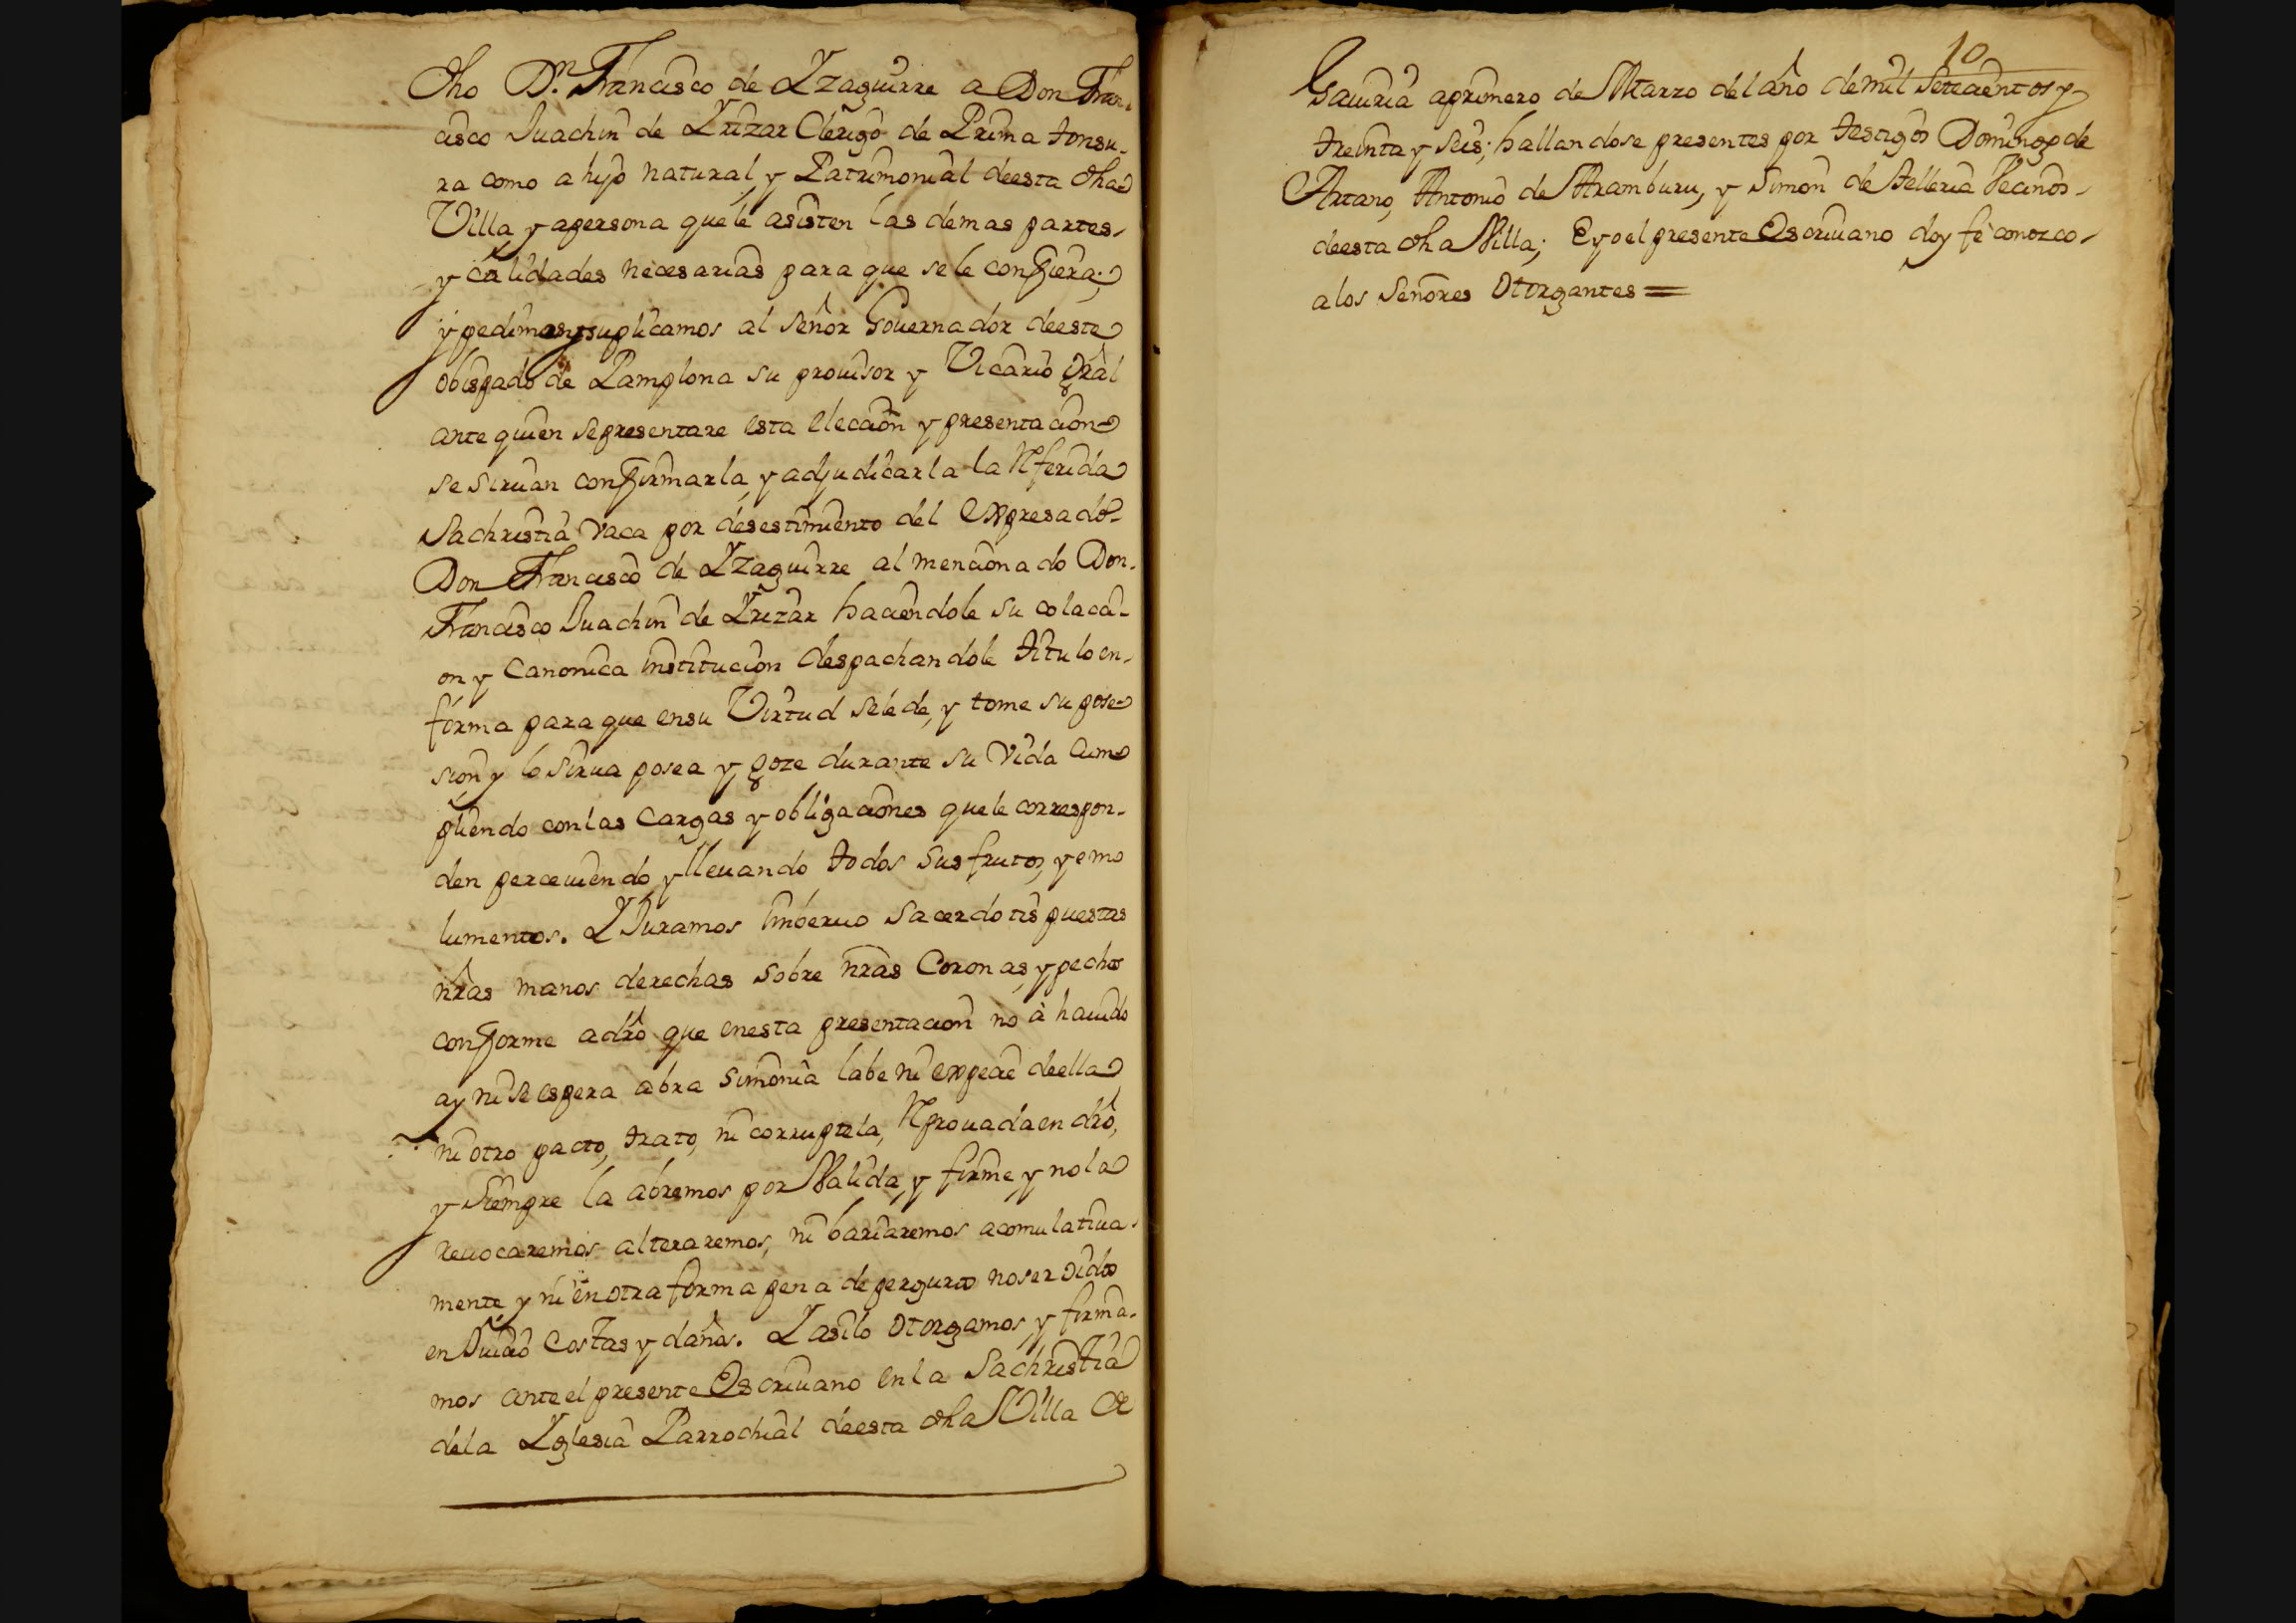 dho D.n Francisco de Yzaguirre a Don Fran-
cisco Juachin de Yrizar Clerigo de Prima tonsu-
ra como a hijo natural, y Patrimonial deesta dha
Villa, y apersona quele asisten las demas partes,
y calidades necesarias para que sele confiera;
y pedimos, y suplicamos al señor Governador deeste
obispado de Pamplona su provisor y Vicario gral
ante quien sepresentare esta eleccion y presentacion
se sirvan confirmarla, y adjudicarla la Referida
Sachristia vaca por desestimiento del expresado
Don Francisco de Yzaguirre al mencionado Don
Francisco Juachin de Yrizar haciendole su colaci-
on y Canonica institucion despachandole titulo en
forma para que ensu Virtud sele de, y tome su pose-
sion, y lo sirva posea y goze durante su vida cum-
pliendo conlas Cargas y obligaciones quele correspon-
den perceviendo y llevando todos sus frutos, y emo
lumentos. Y Juramos inberuo Sacerdotis puestas
nras manos derechas sobre nras Coronas, y pechos
conforme adro que enesta presentacion no à havido
ay ni se espera abra simonia labe ni expecie deella
ni otro pacto, trato, ni corruptela, Reprouada en dro,
y siempre la abremos por Valida, y firme, y nola
reuocaremos alteraremos, ni bariaremos acomulatiua-
mente, y ni en otra forma pena de perjuros no ser oidos
en Juicio costas y daños. Y asilo otorgamos, y firma-
mos ante el presente Escriuano enla Sachristia
dela Yglesia Parrochial deesta dha Villa de
10
Gauiria aprimero de Marzo del año de mil setecientos y
treinta y seis; hallandose presentes por testigos Domingo de
Artano, Antonio de Aramburu, y Simon de Telleria Vecinos
deesta dha Villa; E yo el presente Escriuano doy fè conozco
alos Señores Otorgantes =